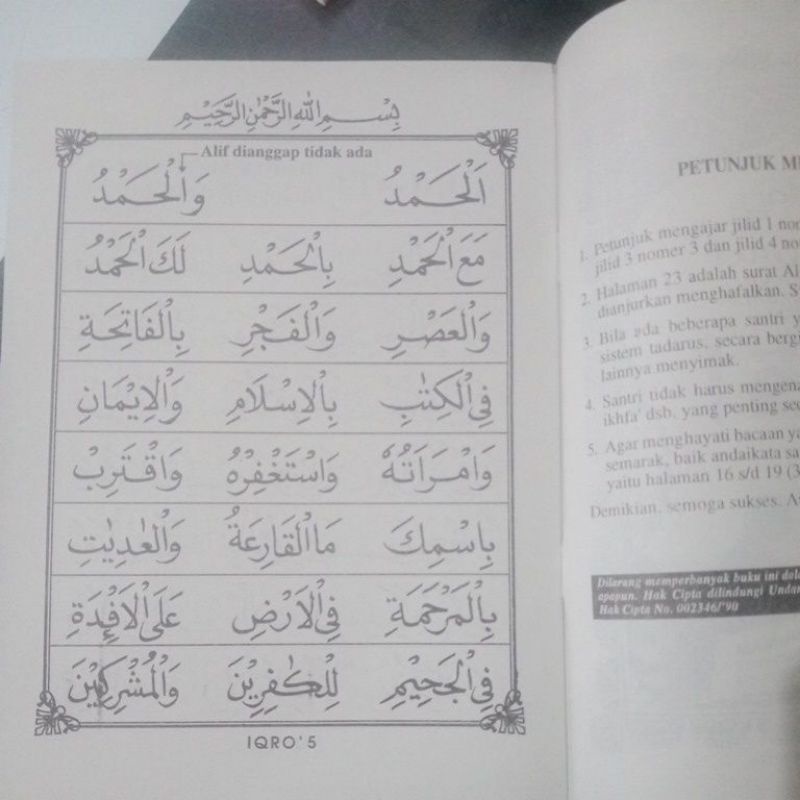 بِسْمِ اللهِ الرَّحْمٰنِ الرَّحِيْمِ
Alif dianggap tidak ada
اَلْحَمْدُ وَالْحَمْدُ
مَعَ الْحَمْدِ بِالْحَمْدِ لَكَ الْحَمْدُ
وَالْعَصْرِ وَالْفَجْرِ بِالْفَاتِحَةِ
فِي الْكِتٰبِ بِالْاِسْلَامِ وَالْاِيْمَانِ
وَامْرَاَتُهٗ وَاسْتَغْفِرْهُ وَاقْتَرِبْ
بِاسْمِكَ مَا الْقَارِعَةُ وَالْعٰدِيٰتِ
بِالْمَرْحَمَةِ فِي الْاَرْضِ عَلَى الْاَفْـِٕدَةِ
فِي الْجَحِيْمِ لِلْكٰفِرِيْنَ وَالْمُشْرِكِيْنَ
IQRO' 5
PETUNJUK
1. Petunjuk mengajar jilid 1
jilid 3 nomer 3 dan jilid 4
2. Halaman 23 adalah surat
dianjurkan menghafalkan.
3. Bila ada beberapa santri
sistem tadarus, secara
lainnya menyimak.
4. Santri tidak harus
ikhfa' dsb, yang penting
5. Agar menghayati bacaan
semarak, baik andaikata
yaitu halaman 16 s/d 19
Demikian, semoga sukses.
Dilarang memperbanyak buku ini
apapun. Hak Cipta dilindungi
Hak Cipta No. 002346/'90